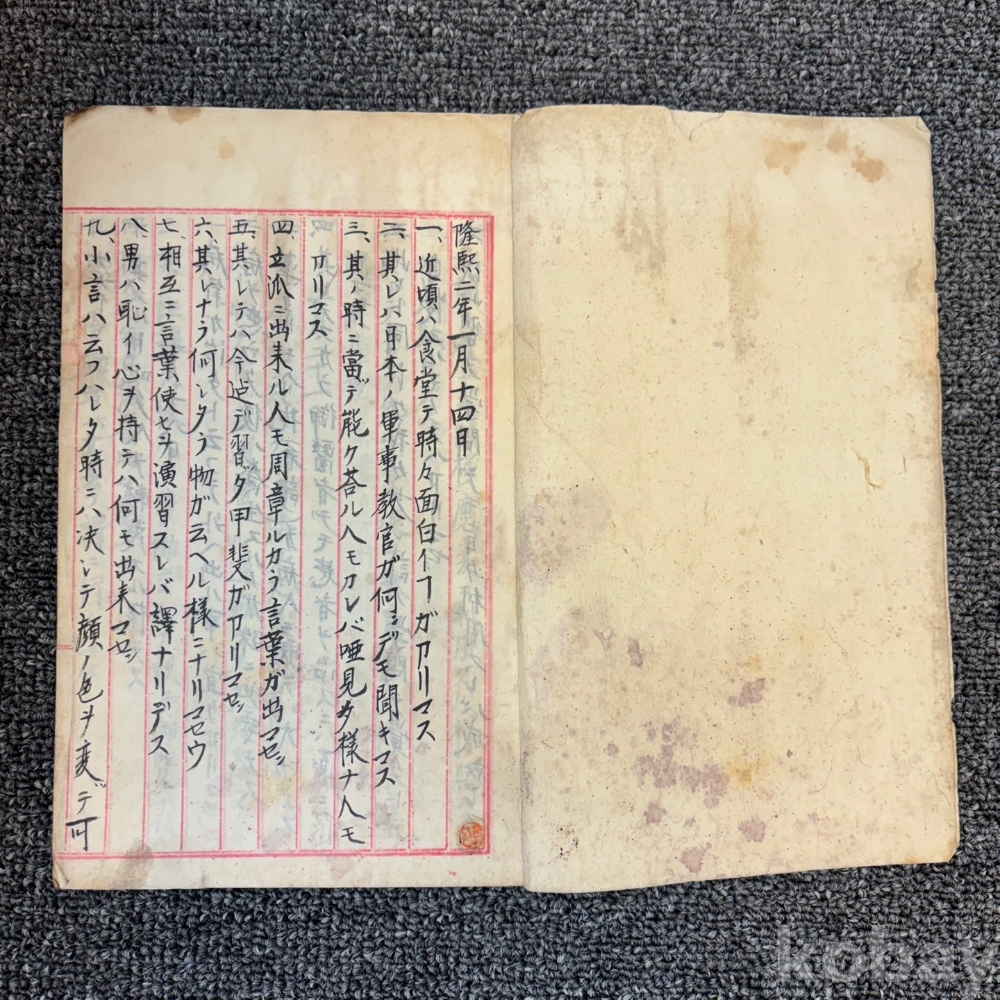 隆熙二年一月十四日
一、近頃ハ食堂テ時々面白イヿガアリマス
二、其レハ日本ノ軍事教官ガ何ンデモ聞キマス
三、其ノ時ニ當デ能ク荅ル人モアレバ唖見タ様ナ人モ
アリマス
四、立派ニ出来ル人モ周章ルカラ言葉ガ出マセン
五、其レテハ今迠デ習ッタ甲斐ガアリマセン
六、其レナラ何シタラ物ガ云ヘル様ニナリマセウ
七、相互ニ言葉使ヒヲ演習スレバ譯ナリデス
八、男ハ恥イ心ヲ持テハ何モ出来マセン
九、小言ハ云フハレタ時ニハ决シテ顔ノ色ヲ変デ可
kobay